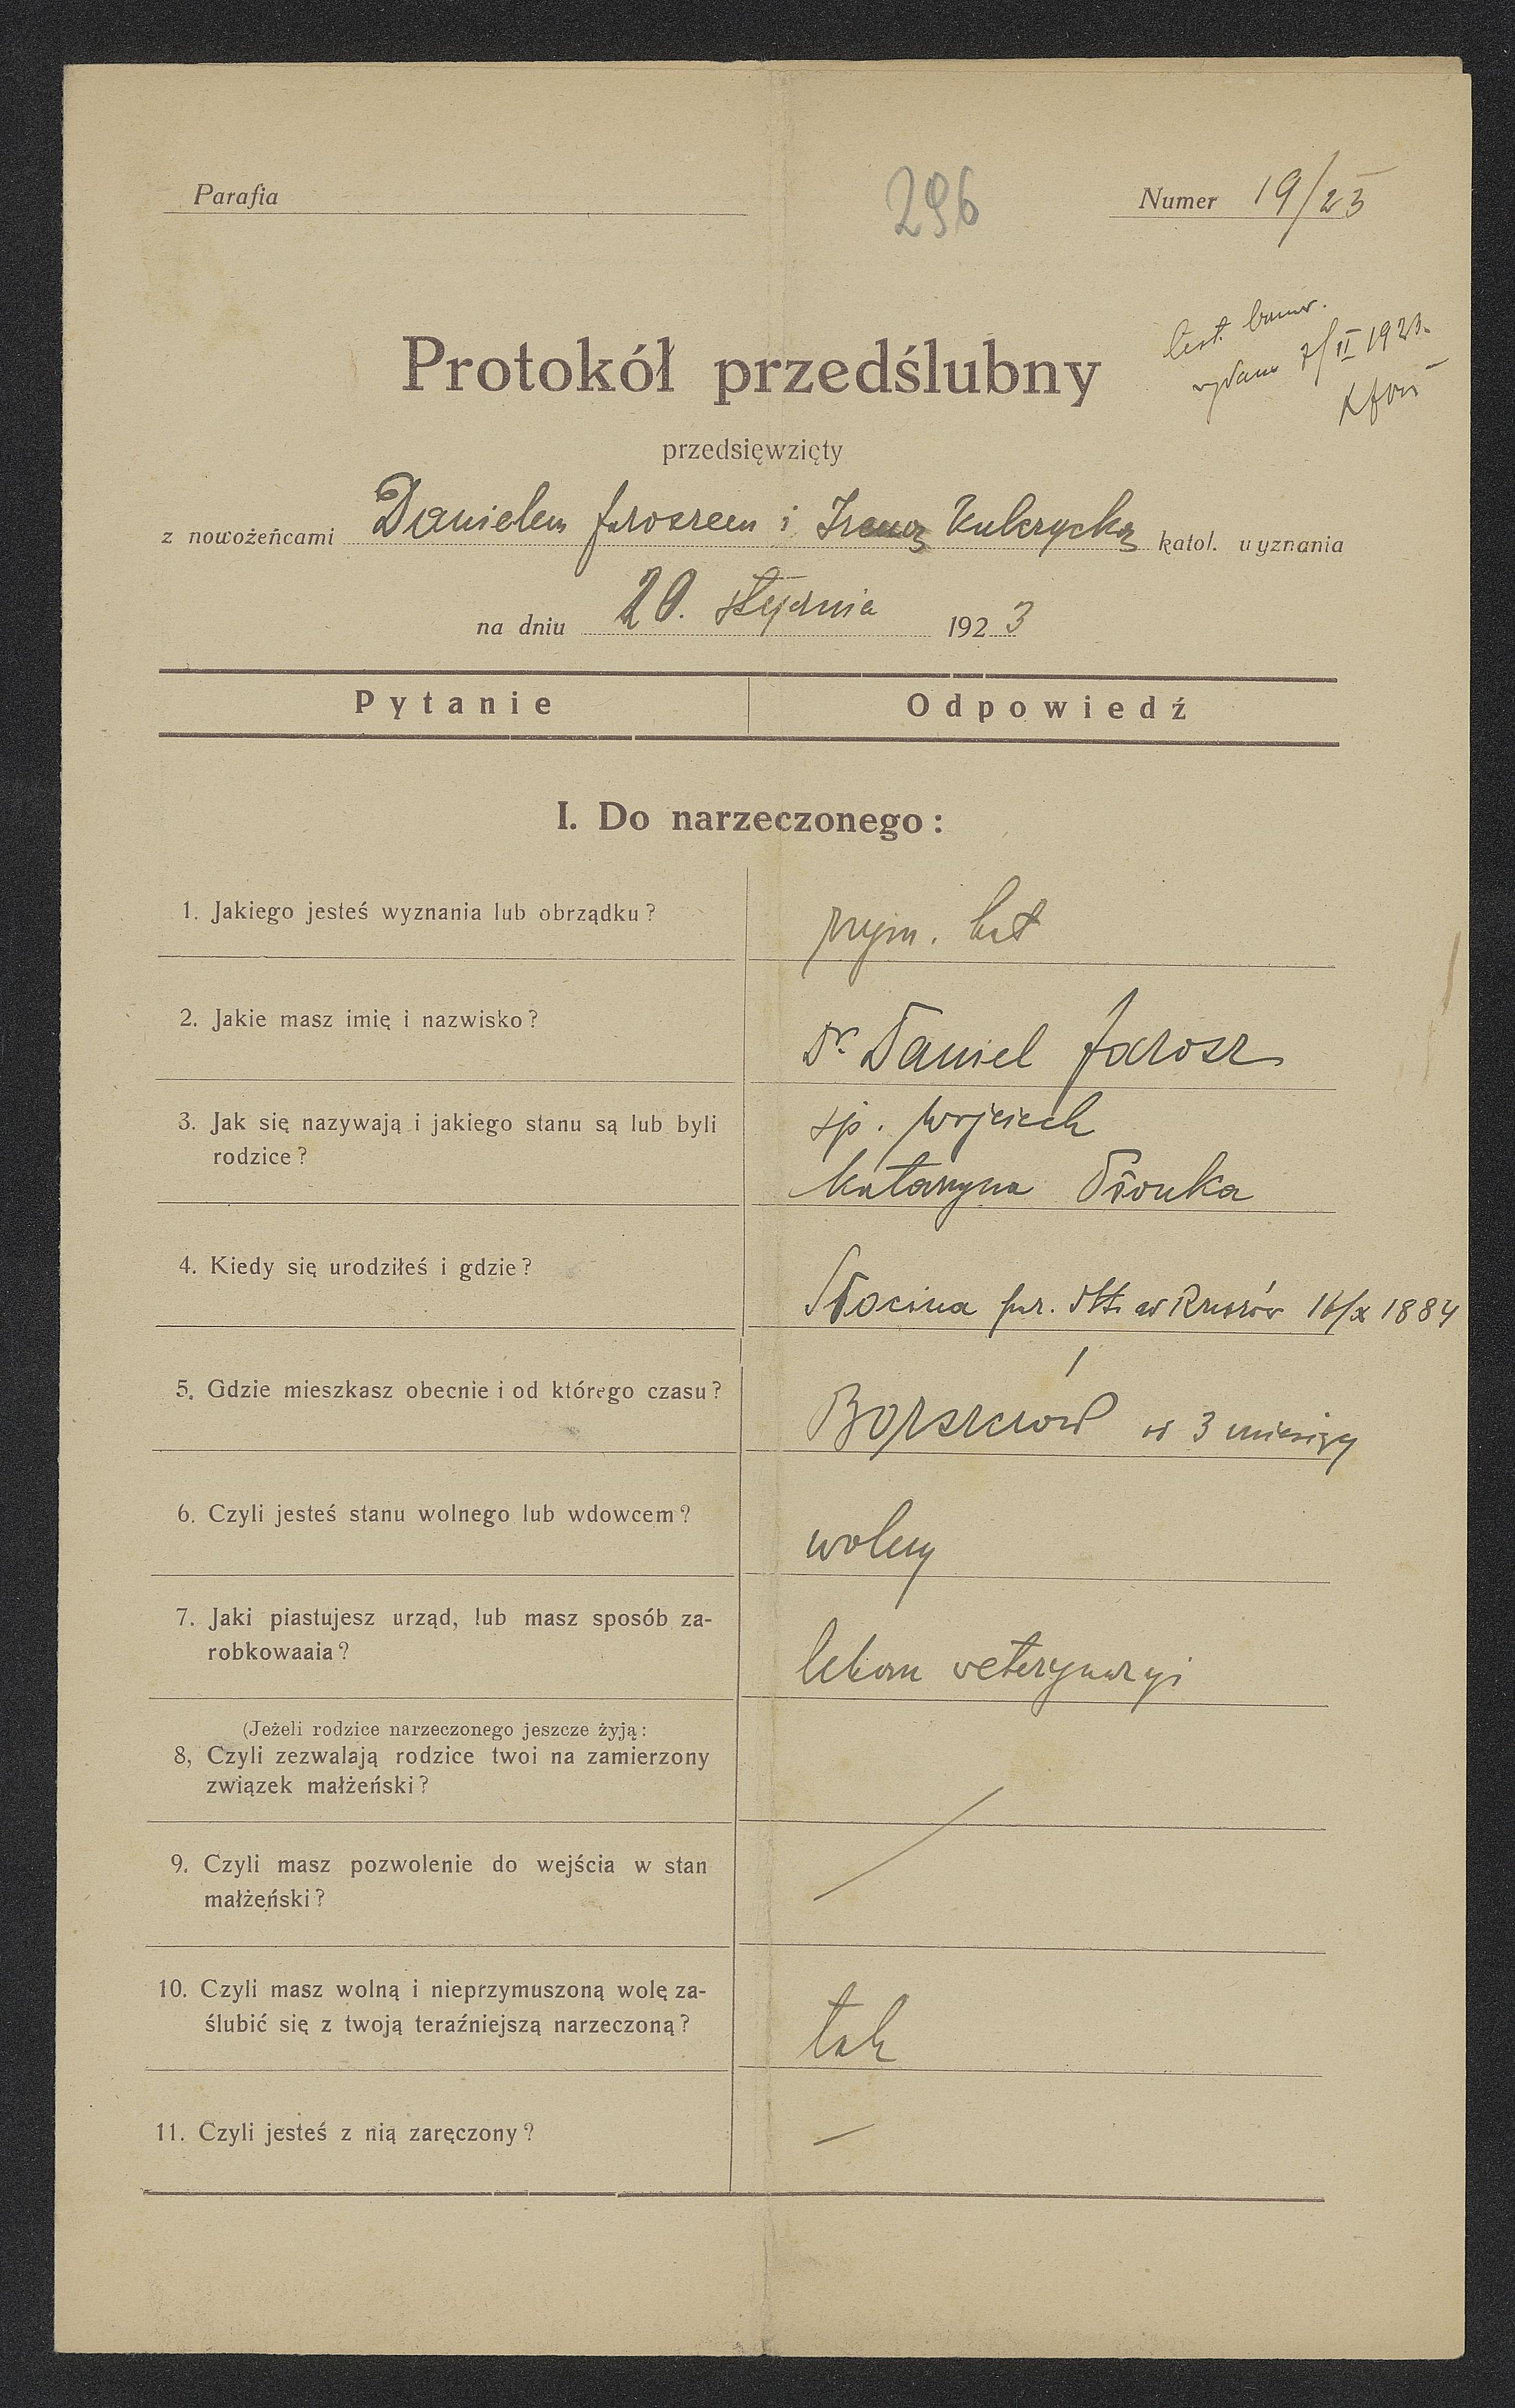 Parafia
296
Numer 19/23
wydano 7/II 1923.
Protokół przedślubny
przedsięwzięty
z nowożeńcami Danielem Jaroszem i Ireną Kulczycką katol. wyznania
na dniu 20. stycznia 1923
Pytanie
Odpowiedź
I. Do narzeczonego:
1. Jakiego jesteś wyznania lub obrządku?
rzym. kat
2. Jakie masz imię i nazwisko?
Dr. Daniel Jarosz
3. Jak się nazywają i jakiego stanu są lub byli
rodzice?
śp. Wojciech
Katarzyna
4. Kiedy się urodziłeś i gdzie?
Słocina 16/X 1884
5. Gdzie mieszkasz obecnie i od którego czasu?
Borszczów od 3 miesięcy
6. Czyli jesteś stanu wolnego lub wdowcem?
wolny
7. Jaki piastujesz urząd, lub masz sposób za-
robkowaaia?
lekarz weterynaryi
(Jeżeli rodzice narzeczonego jeszcze żyją:
8, Czyli zezwalają rodzice twoi na zamierzony
związek małżeński?
9. Czyli masz pozwolenie do wejścia w stan
małżeński?
10. Czyli masz wolną i nieprzymuszoną wolę za-
ślubić się z twoją teraźniejszą narzeczoną?
tak
11. Czyli jesteś z nią zaręczony?
—